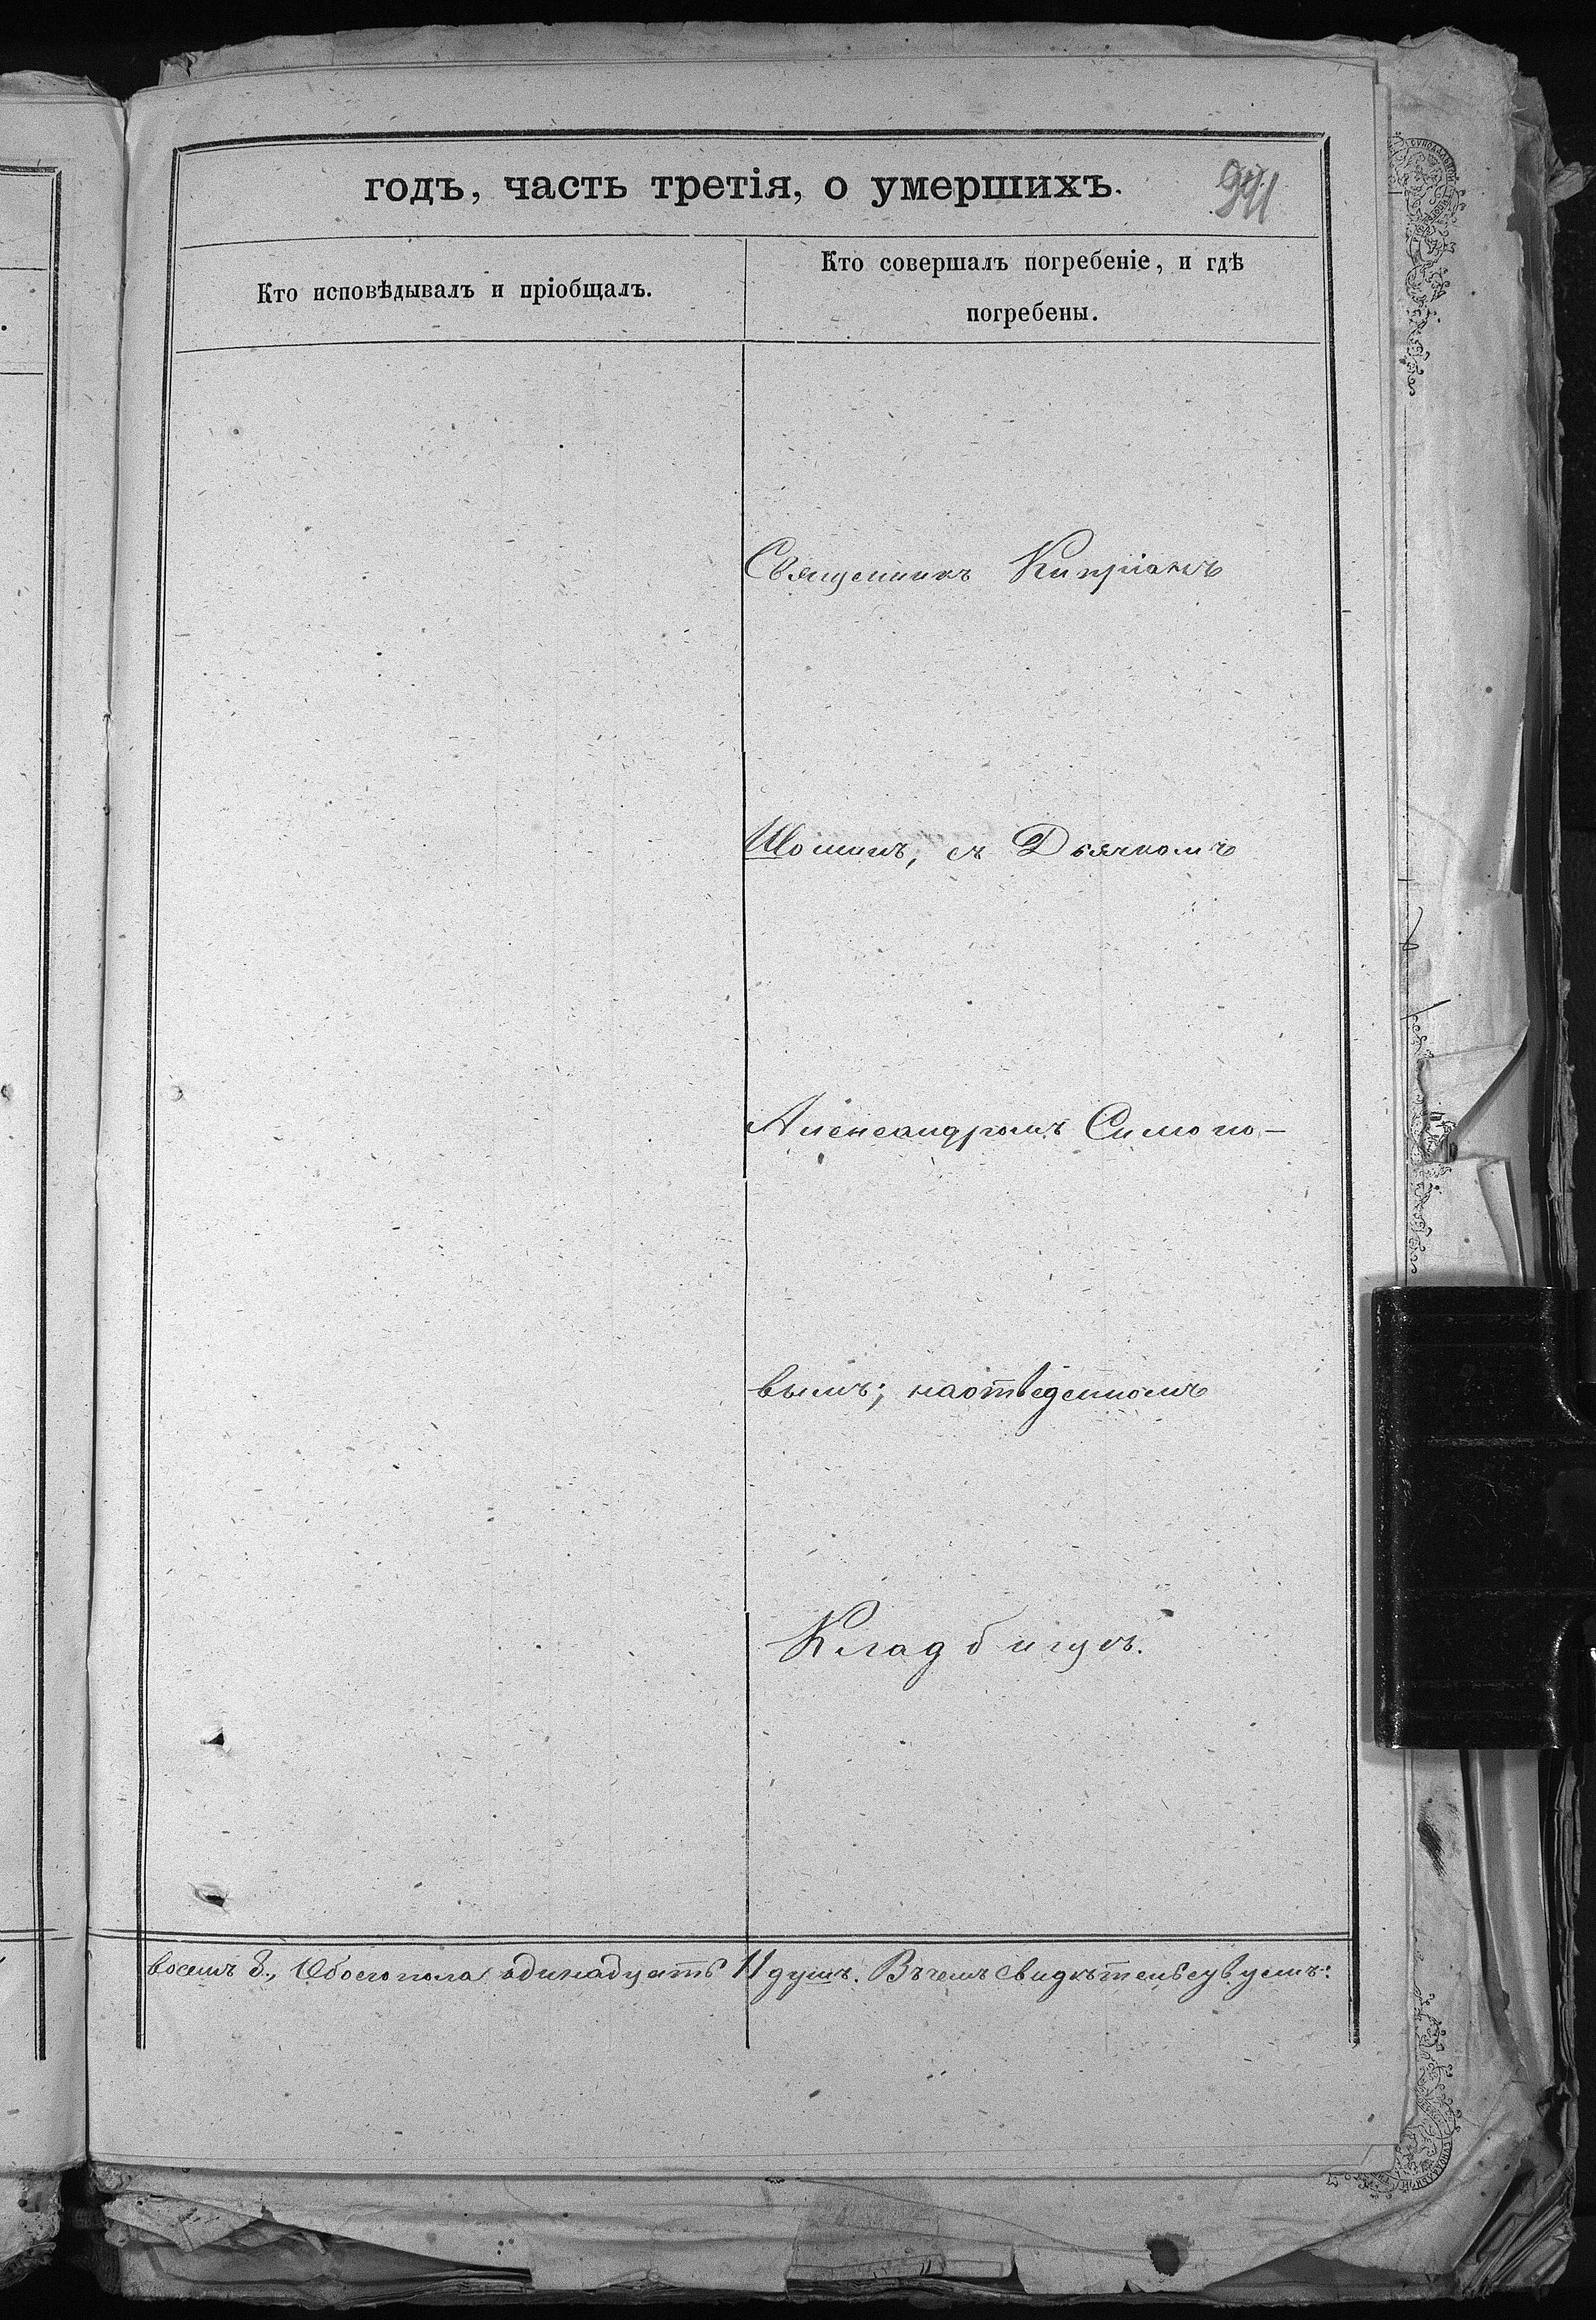 годъ, часть третія, о умершихъ.
941
Кто исповѣдывалъ и пріобщалъ.
Кто совершалъ погребеніе, и гдѣ
погребены.
Священникъ Кипріанъ
Шошинъ, съ Дьячкомъ
Александромъ Симоно-
вымъ; на отведенномъ
Кладбищѣ.
восемь 8., Обоего пола одинадцать 11 душъ. Въ чемъ свидѣтельствуемъ: